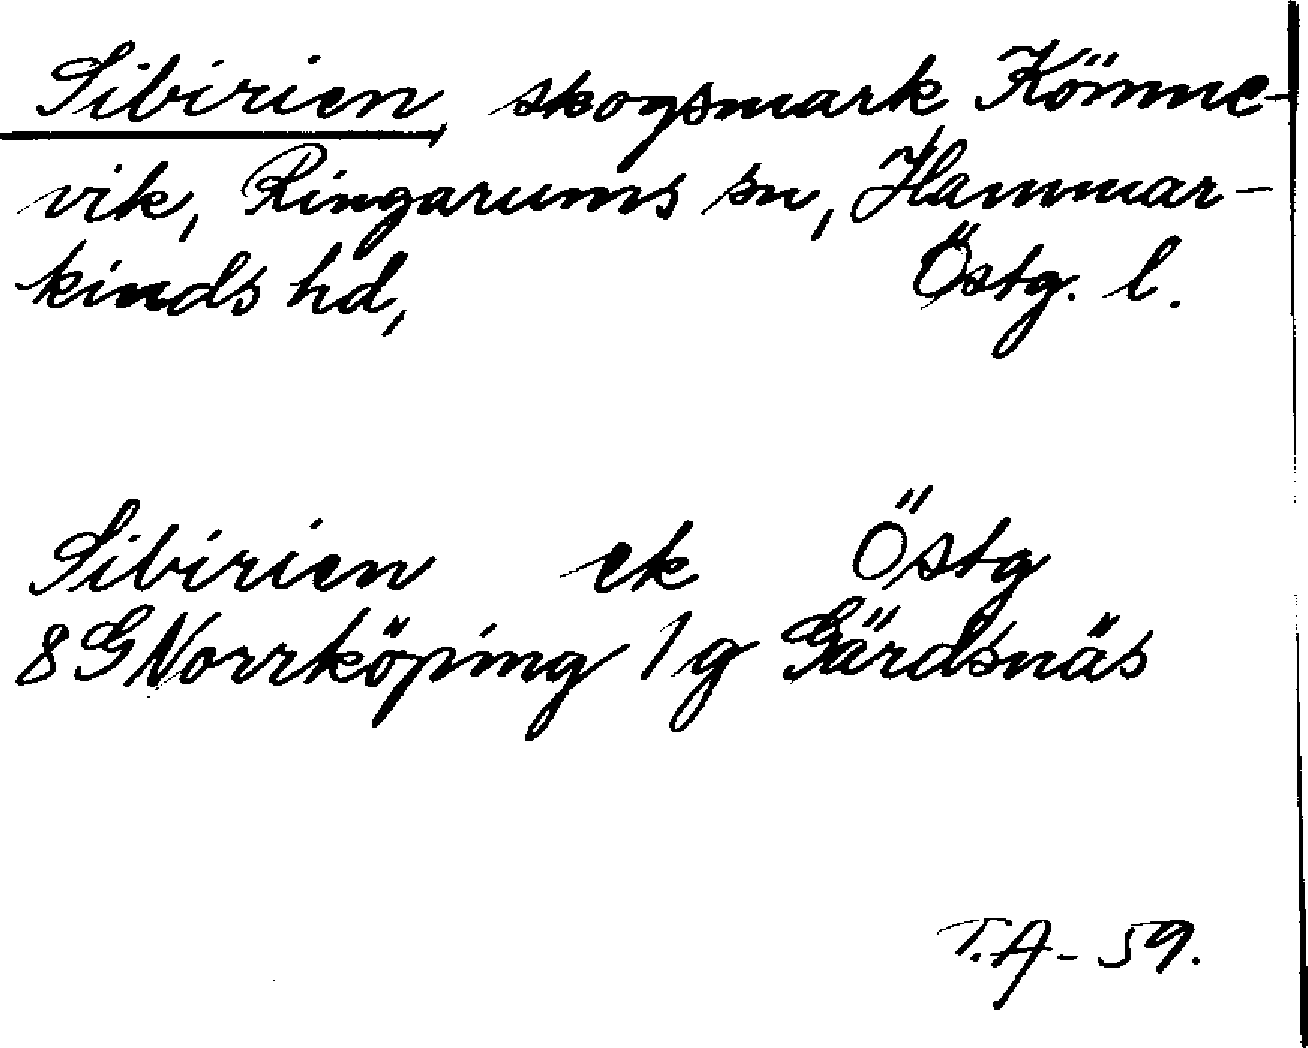 Sibirien, skogsmark Kömme-
vik, Ringarums sn, Hammar-
kinds hd, Östg. l.
Sibirien ek Östg
8 G Norrköping 1 g Gärdsnäs
T.A - 59.